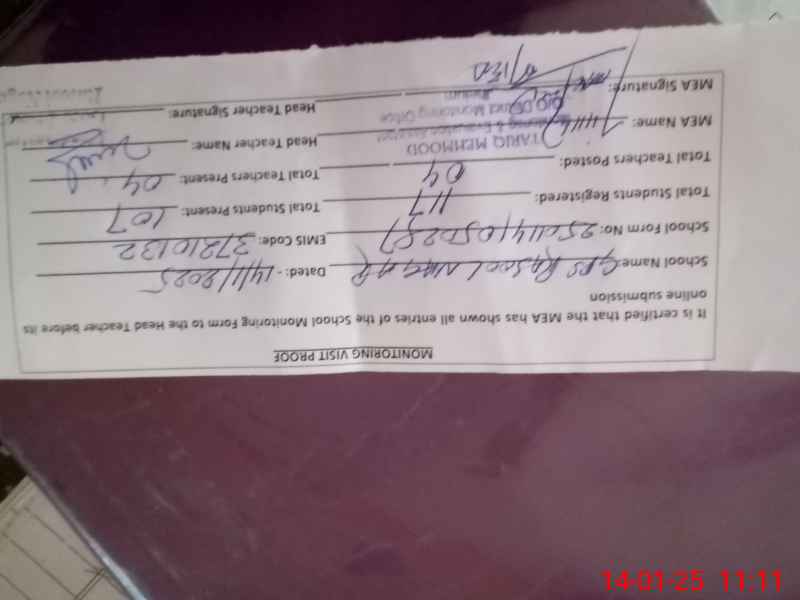 MONITORING VISIT PROOF
It is certified that the MEA has shown all entries of the School Monitoring Form to the Head Teacher before its
online submission
School Name: GPS Rasool Nagar Dated: - 14/1/2025
School Form No: EMIS Code: 37210132
Total Students Registered: 117 Total Students Present: 107
Total Teachers Posted: 04 Total Teachers Present: 04
MEA Name: Head Teacher Name:
TARIQ MEHMOOD
Monitoring & Evaluation Assistant
O/O District Monitoring Office
MEA Signature: Head Teacher Signature:
14-01-25 11:11